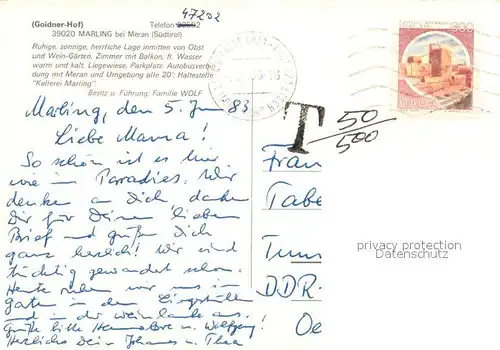 47202
(Goidner-Hof) Telefon
39020 MARLING bei Meran (Südtirol)
Ruhige, sonnige, herrliche Lage inmitten von Obst
und Wein-Gärten. Zimmer mit Balkon, fl. Wasser
warm und kalt. Liegewiese. Parkplatz. Autobusverbin
dung mit Meran und Umgebung alle 20': Haltestelle
"Kellerei Marling".
Besitz u. Führung: Familie WOLF
Marling, den 5. Juni 83
Liebe Mama!
So schön ist es hier
wie im Paradies. Wir
denken an Dich, danken
Dir für Deinen lieben
Brief und grüßen Dich
ganz herzlich! Wir sind
tüchtig gewandert schon.
Heute ruhen wir uns im
Garten in den
und in der aus.
Grüße bitte Hannelore u. Wolfgang!
Herzlichst Dein Johannes u. Thea
T 50/500
Frau
Tabe
DDR-
Oe
privacy protection
Datenschutz